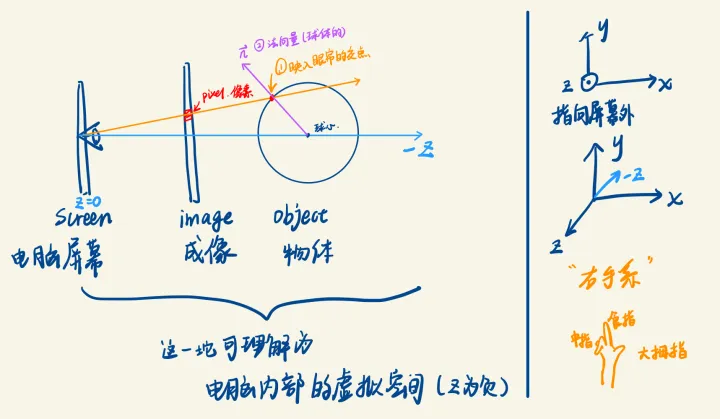 n ②法向量(球体的)
①映入眼帘的交点
pixel. 像素
球心.
-Z
Z=0
Screen
image
object
电脑屏幕
成像
物体
这一坨可理解为
电脑内部的虚拟空间(Z为负)
y
Z
x
指向屏幕外
y
-Z
x
Z
“右手系”
食指
中指
大拇指